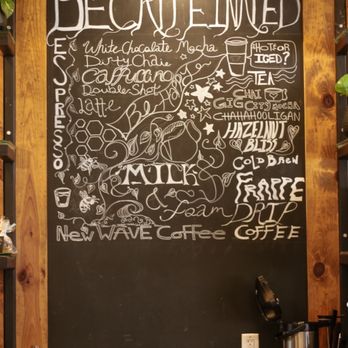 DECAFFEINATED
ESPRESSO
White Chocolate Mocha
Dirty Chai
Cappuccino
Double Shot
Latte
HOT OR
ICED?
TEA
CHAI
GIG CITY MOCHA
CHAIHOOLIGAN
HAZELNUT
BLISS
COLD BREW
MILK
& foam
FRAPPE
DRIP
COFFEE
New WAVE Coffee